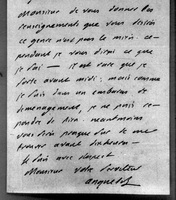 Monsieur de vous donner les
renseignements que vous désirez
ce genre n'est pas le mien ce-
pendant je vous dirai ce que
je sais — il est rare que je
sorte avant midi; mais comme
je suis dans un embarras de
demenagement, je ne puis ré-
pondre de rien. neantmoins
vous serez presque sur de me
trouver avant
je suis avec respect
Monsieur votre serviteur
anquetil